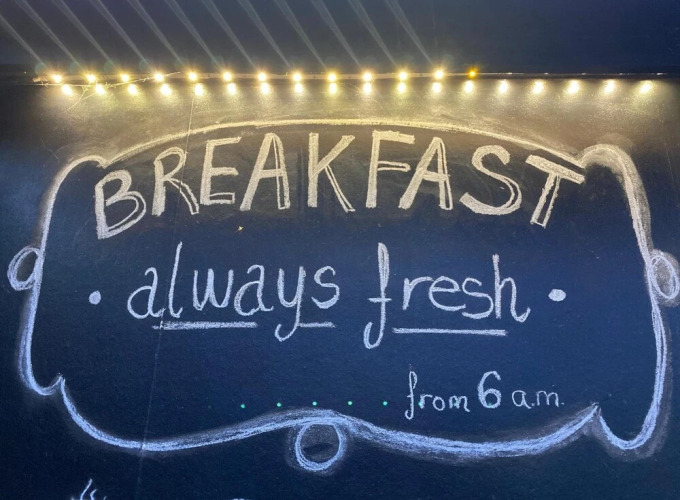 BREAKFAST
always fresh
from 6 a.m.